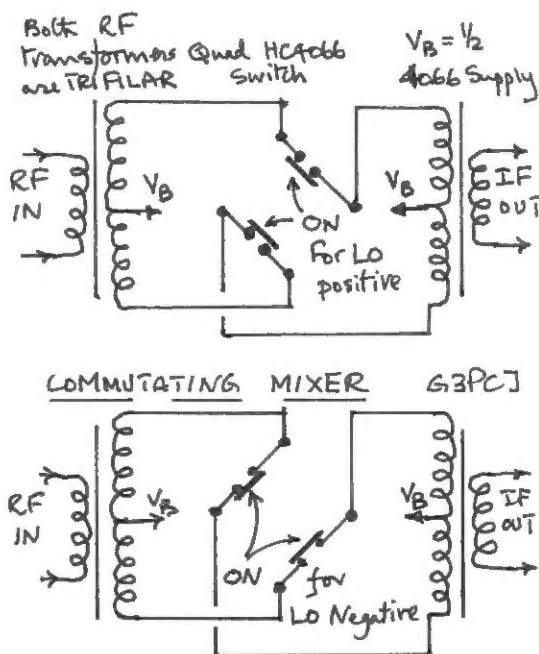 Both RF
Transformers
are TRIFILAR
Quad HC4066
Switch
VB = 1/2
4066 Supply
RF
IN
VB
ON
for LO
positive
VB
IF
OUT
COMMUTATING MIXER G3PCJ
RF
IN
VB
ON
for
LO Negative
VB
IF
OUT